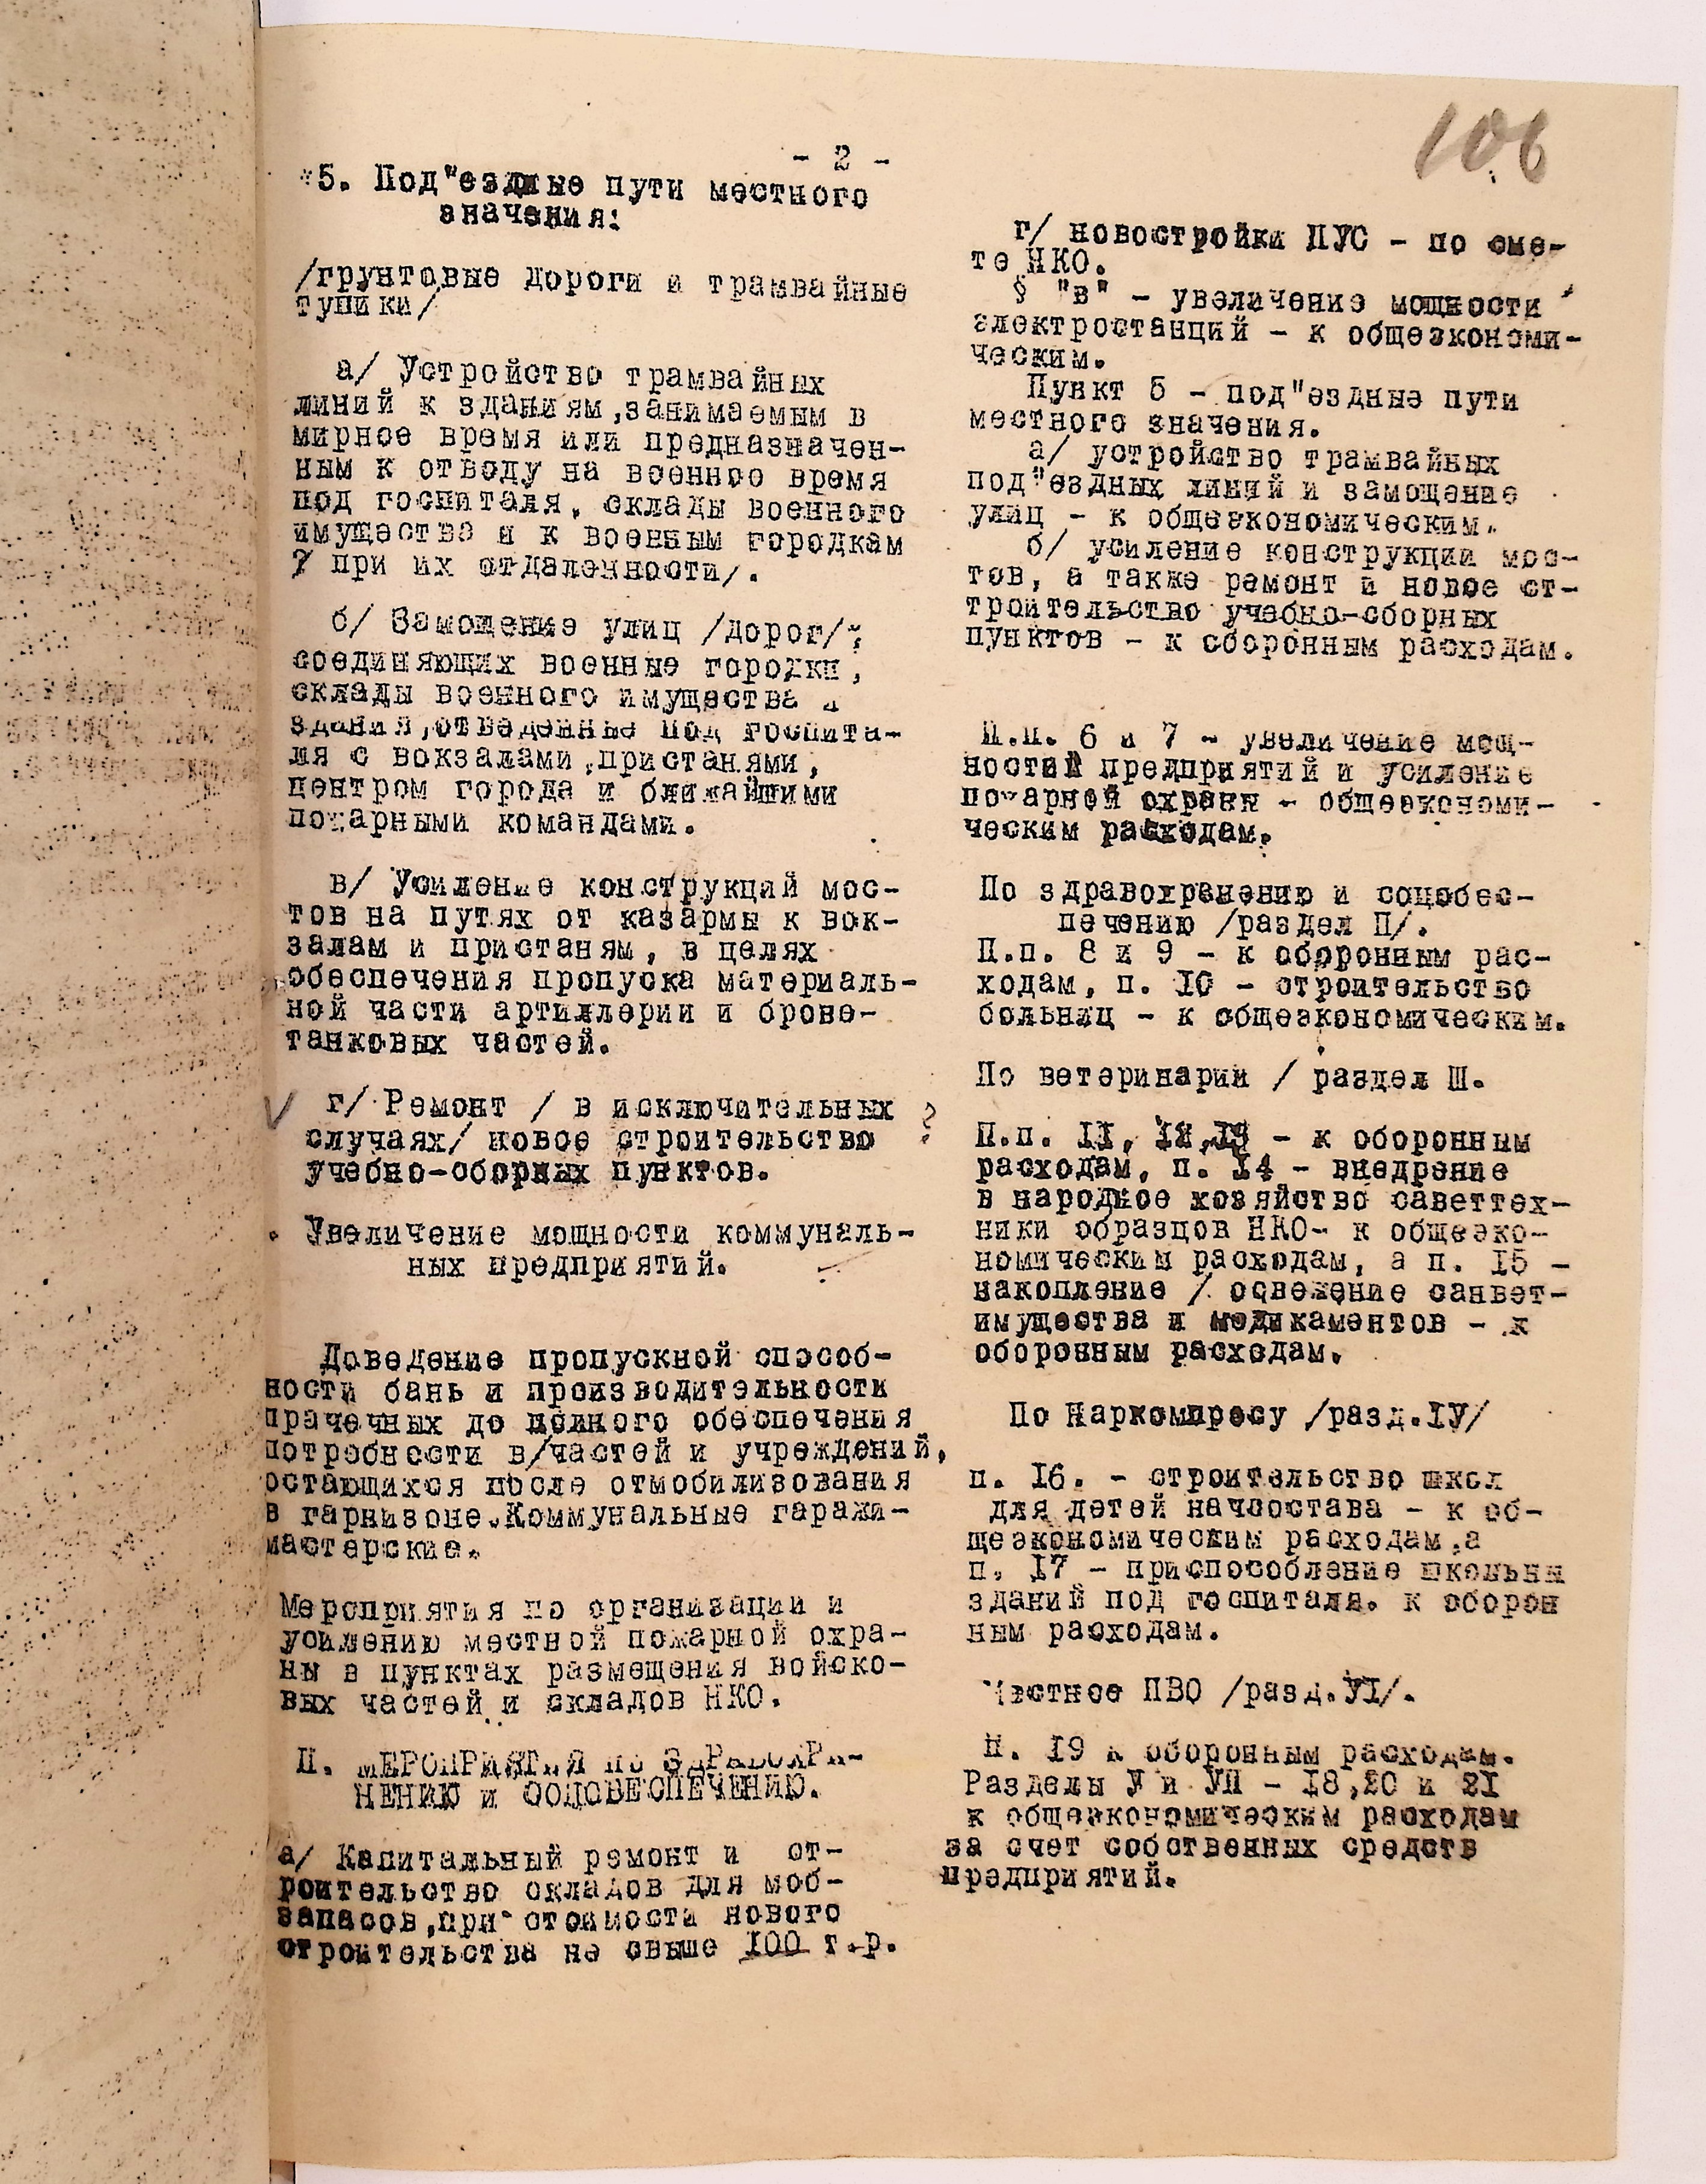 106
- 2 -
5. Под"ездные пути местного
значения:
/грунтовые дороги и трамвайные
тупики/
а/ Устройство трамвайных
линий к зданиям,занимаемым в
мирное время или предназначен-
ным к отводу на военное время
под госпиталя, склады военного
имущества и к военным городкам
/ при их отдаленности/.
б/ Замощение улиц /дорог/,
соединяющих военные городки,
склады военного имущества и
здания,отведенные под госпита-
ля с вокзалами,пристанями,
центром города и ближайшими
пожарными командами.
в/ Усиление конструкций мос-
тов на путях от казармы к вок-
залам и пристаням, в целях
обеспечения пропуска материаль-
ной части артиллерии и броне-
танковых частей.
г/ Ремонт / в исключительных ?
случаях/ новое строительство
учебно-сборных пунктов.
. Увеличение мощности коммуналь-
ных предприятий.
Доведение пропускной способ-
ности бань и производительности
прачечных до полного обеспечения
потребности в/частей и учреждений,
остающихся после отмобилизования
в гарнизоне.Коммунальные гаражи-
мастерские.
Мероприятия по организации и
усилению местной пожарной охра-
ны в пунктах размещения войско-
вых частей и складов НКО.
П. МЕРОПРИЯТИЯ ПО ЗДРАВОХРА-
НЕНИЮ и СОЦОБЕСПЕЧЕНИЮ.
а/ Капитальный ремонт и ст-
роительство складов для моб-
запасов,при стоимости нового
строительства не свыше 100 т.р.
г/ новостройки ПУС - по сме-
те НКО.
§ "в" - увеличение мощности
электростанций - к общеэкономи-
ческим.
Пункт 5 - под"ездные пути
местного значения.
а/ устройство трамвайных
под"ездных линий и замощение
улиц - к общеэкономическим.
б/ усиление конструкции мос-
тов, а также ремонт и новое ст-
троительство учебно-сборных
пунктов - к оборонным расходам.
П.п. 6 и 7 - увеличение мощ-
ностей предприятий и усиление
пожарной охраны - общеэкономи-
ческим расходам.
По здравохранению и соцобес-
печению /раздел П/.
П.п. 8 и 9 - к оборонным рас-
ходам, п. 10 - строительство
больниц - к общеэкономическим.
По ветеринарии / раздел Ш.
П.п. II, I2,I3 - к оборонным
расходам, п. I4 - внедрение
в народное хозяйство саветтех-
ники образцов НКО- к общеэко-
номическим расходам, а п. I5 -
накопление / освежение санвет-
имущества и медикаментов - к
оборонным расходам.
По Наркомпросу /разд.IУ/
п. I6. - строительство школ
для детей начсостава - к об-
щеэкономическим расходам,а
п. I7 - приспособление школьны
зданий под госпиталя. к оборон
ным расходам.
Местное ПВО /разд.УI/.
П. I9 к оборонным расходам.
Разделы У и УП - I8,20 и 2I
к общеэкономическим расходам
за счет собственных средств
предприятий.